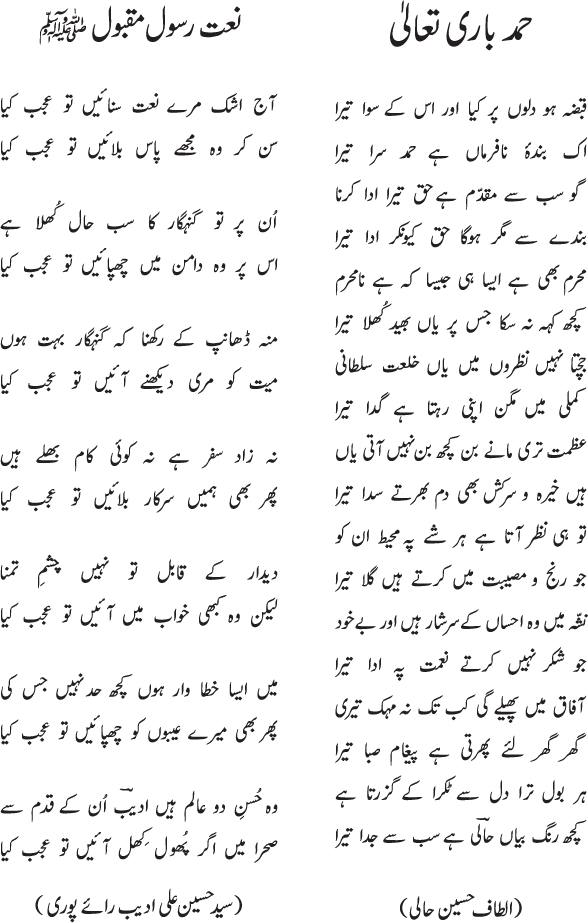 حمد باری تعالیٰ
قبضہ ہو دلوں پر کیا اور اس کے سوا تیرا
اک بندۂ نافرماں ہے حمد سرا تیرا
گو سب سے مقدّم ہے حق تیرا ادا کرنا
بندے سے مگر ہوگا حق کیونکر ادا تیرا
محرم بھی ہے ایسا ہی جیسا کہ ہے نامحرم
کچھ کہہ نہ سکا جس پر یاں بھید کُھلا تیرا
جچتا نہیں نظروں میں یاں خلعت سلطانی
کملی میں مگن اپنی رہتا ہے گدا تیرا
عظمت تری مانے بن کچھ بن نہیں آتی یاں
ہیں خیرہ و سرکش بھی دم بھرتے سدا تیرا
تو ہی نظر آتا ہے ہر شے پہ محیط ان کو
جو رنج و مصیبت میں کرتے ہیں گلا تیرا
نشہ میں وہ احساں کے سرشار ہیں اور بے خود
جو شکر نہیں کرتے نعمت پہ ادا تیرا
آفاق میں پھیلے گی کب تک نہ مہک تیری
گھر گھر لئے پھرتی ہے پیغام صبا تیرا
ہر بول ترا دل سے ٹکرا کے گزرتا ہے
کچھ رنگ بیاں حالیؔ ہے سب سے جدا تیرا
(الطاف حسین حالی)
نعت رسول مقبول ﷺ
آج اشک مرے نعت سنائیں تو عجب کیا
سن کر وہ مجھے پاس بلائیں تو عجب کیا
اُن پر تو گنہگار کا سب حال کُھلا ہے
اس پر وہ دامن میں چھپائیں تو عجب کیا
منہ ڈھانپ کے رکھنا کہ گنہگار بہت ہوں
میت کو مری دیکھنے آئیں تو عجب کیا
نہ زاد سفر ہے نہ کوئی کام بھلے ہیں
پھر بھی ہمیں سرکار بلائیں تو عجب کیا
دیدار کے قابل تو نہیں چشمِ تمنا
لیکن وہ کبھی خواب میں آئیں تو عجب کیا
میں ایسا خطا وار ہوں کچھ حد نہیں جس کی
پھر بھی میرے عیبوں کو چھپائیں تو عجب کیا
وہ حُسنِ دو عالم ہیں ادیبؔ اُن کے قدم سے
صحرا میں اگر پُھول کِھل آئیں تو عجب کیا
(سید حسین علی ادیب رائے پوری)